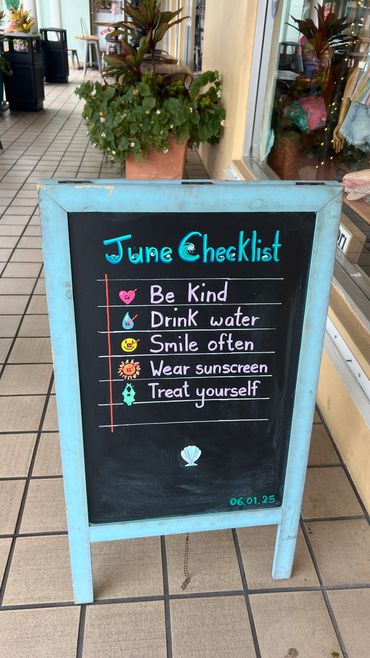 June Checklist
Be Kind
Drink water
Smile often
Wear sunscreen
Treat yourself
06.01.25